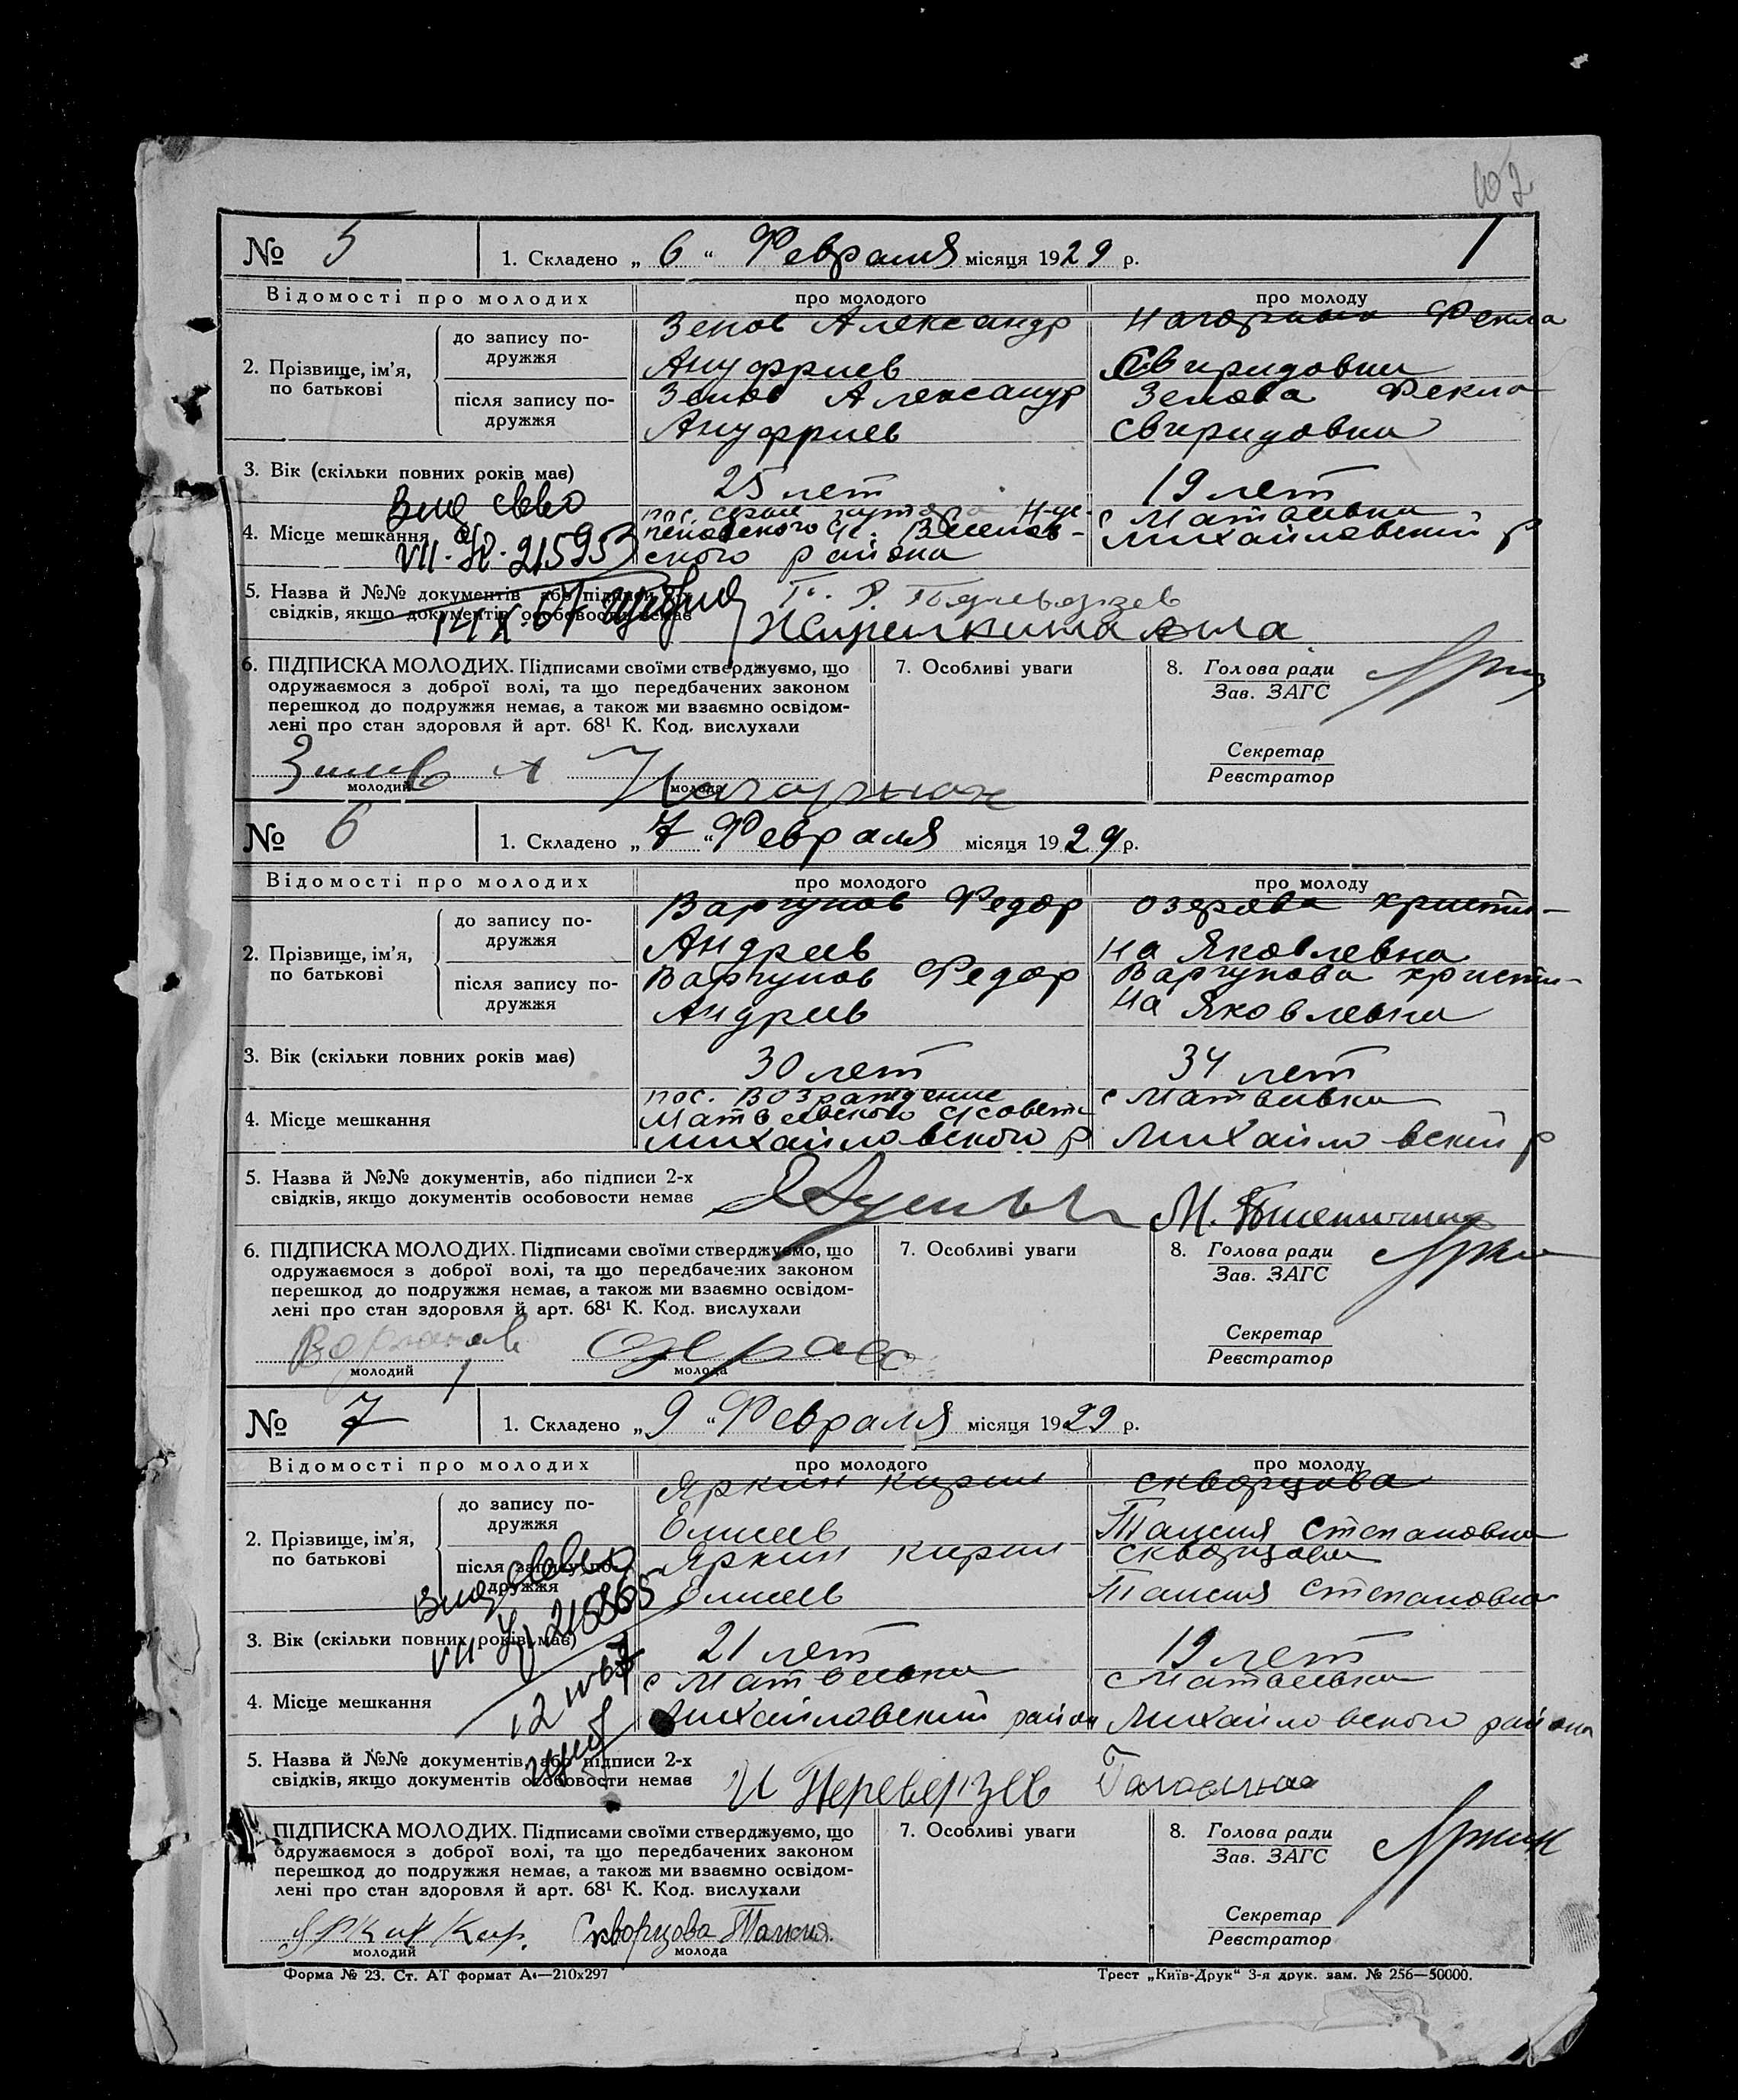 102
№ 5 1. Складено „ 6 “ Февраля місяця 1929 р. 1
Відомості про молодих про молодого про молоду
2. Прізвище, ім'я, по батькові
до запису подружжя Зенов Александр Фекла
Ануфриев Свиридовна
після запису подружжя Зенов Александр Зенова Фекла
Ануфриев Свиридовна
3. Вік (скільки повних років має) 25 лет 19 лет
Вид св-во
4. Місце мешкання пос. с Матвеевка
ского района Михайловский р
VII 215953
5. Назва й №№ документів або підписи 2-х
свідків, якщо документів особовости немає
6. ПІДПИСКА МОЛОДИХ. Підписами своїми стверджуємо, що 7. Особливі уваги 8. Голова ради
одружаємося з доброї волі, та що передбачених законом Зав. ЗАГС
перешкод до подружжя немає, а також ми взаємно освідом-
лені про стан здоровля й арт. 68¹ К. Код. вислухали
Секретар
Реєстратор
молодий молода
№ 6 1. Складено „ 7 “ Февраля місяця 1929 р.
Відомості про молодих про молодого про молоду
2. Прізвище, ім'я, по батькові
до запису подружжя Варгунов Федор Озерова Кристи-
Андреев на Яковлевна
після запису подружжя Варгунов Федор Варгунова Кристи-
Андреев на Яковлевна
3. Вік (скільки повних років має) 30 лет 34 лет
пос. Возраждение с Матвеевка
4. Місце мешкання Матвеевского с/совета
Михайловского р Михайловский р
5. Назва й №№ документів, або підписи 2-х
свідків, якщо документів особовости немає
6. ПІДПИСКА МОЛОДИХ. Підписами своїми стверджуємо, що 7. Особливі уваги 8. Голова ради
одружаємося з доброї волі, та що передбачених законом Зав. ЗАГС
перешкод до подружжя немає, а також ми взаємно освідом-
лені про стан здоровля й арт. 68¹ К. Код. вислухали
Секретар
Реєстратор
Озерова
молодий молода
№ 7 1. Складено „ 9 “ Февраля місяця 1929 р.
Відомості про молодих про молодого про молоду
2. Прізвище, ім'я, по батькові
до запису подружжя Яркин Кирил Скворцова
Елисеев Таисия Степановна
після запису подружжя Яркин Кирил Скворцова
Елисеев Таисия Степановна
3. Вік (скільки повних років має) 21 лет 19 лет
с Матвеевка с Матвеевка
4. Місце мешкання Михайловский район Михайловского района
5. Назва й №№ документів, або підписи 2-х
свідків, якщо документів особовости немає И Переверзев
ПІДПИСКА МОЛОДИХ. Підписами своїми стверджуємо, що 7. Особливі уваги 8. Голова ради
одружаємося з доброї волі, та що передбачених законом Зав. ЗАГС
перешкод до подружжя немає, а також ми взаємно освідом-
лені про стан здоровля й арт. 68¹ К. Код. вислухали
Секретар
Реєстратор
Яркин Кир. Скворцова Таисия
молодий молода
Форма № 23. Ст. АТ формат А₄—210x297 Трест „Київ-Друк“ 3-я друк. зам. № 256—50000.